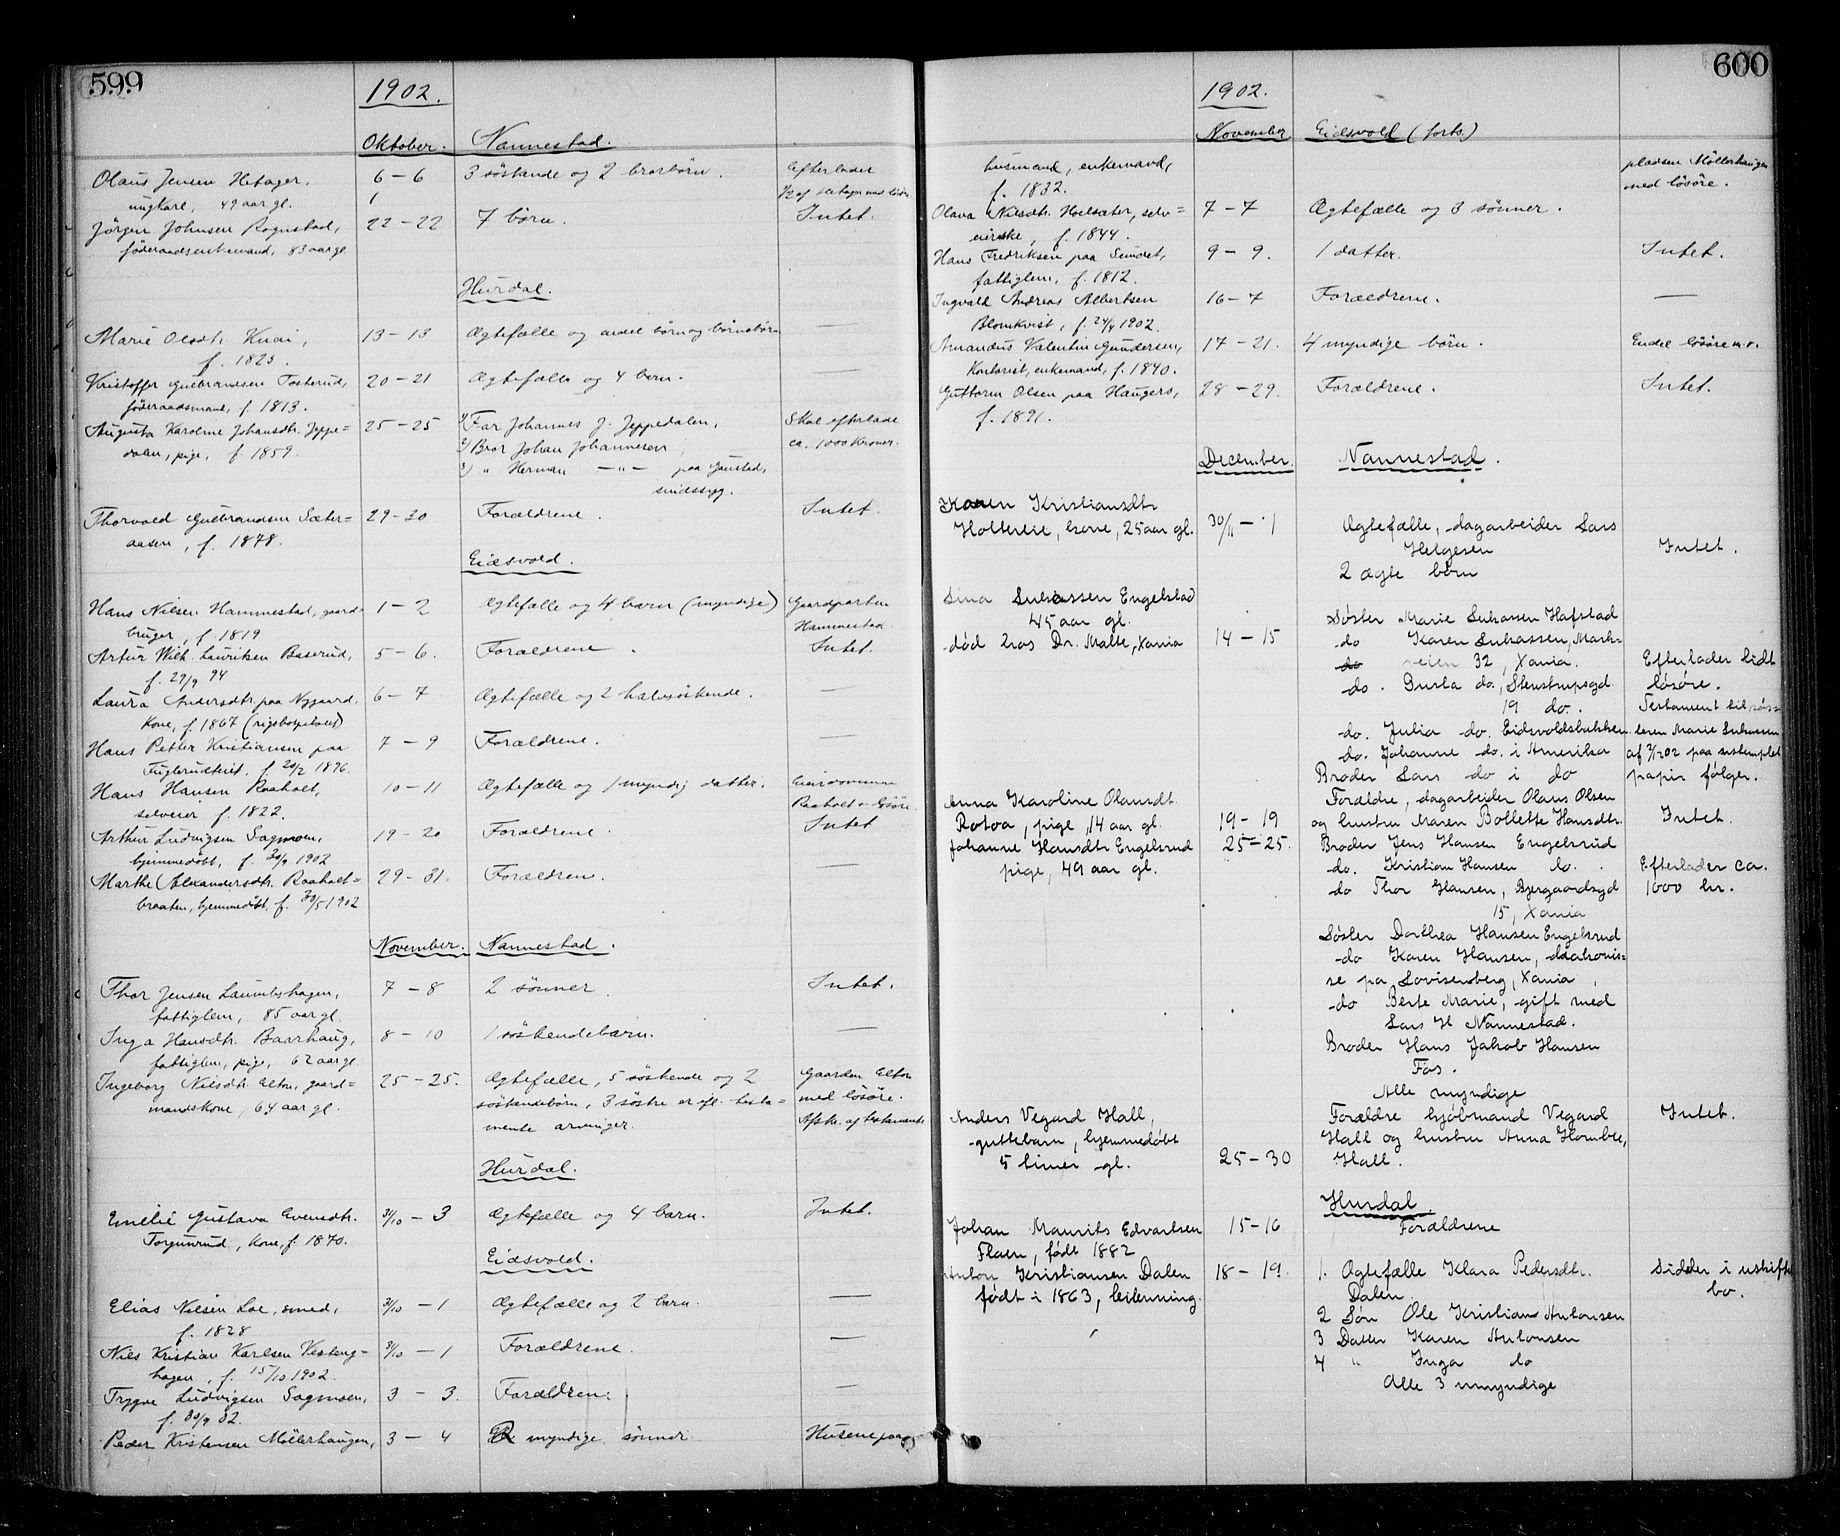 599
1902.
Oktober. Nannestad.
Olaus Jensen Hetager, 6 – 6 3 söskende og 2 brorbörn. Efterlader
ungkarl, 49 aar gl. 1/2 af Hetager med lösöre
Jörgen Johnsen Rognstad, 22 – 22 7 börn. Intet.
föderaadsenkemand, 83 aar gl.
Hurdal.
Marie Olsdtr. Knai, 13 – 13 Ægtefælle og endel börn og börnebörn —
f. 1823.
Kristoffer Gulbrandsen Tosterud, 20 – 21 Ægtefælle og 4 barn. —
föderaadsmand, f. 1813.
Augusta Karoline Johansdtr. Jeppe= 25 – 25 1/ Far Johannes J. Jeppedalen, Skal efterlade
dalen, pige, f. 1859. 2/ Bror Johan Johannesen, ca. 1000 Kroner.
3/ " Herman —"— paa Gaustad,
sindssyg.
Thorvald Gulbrandsen Sæter= 29 – 30 Forældrene. Intet.
aasen, f. 1878.
Eidsvold.
Hans Nilsen Hammestad, gaard= 1 – 2 Ægtefælle og 4 barn (myndige) Gaardparten
bruger, f. 1819 Hammestad
Artur Wilh. Lauritsen Baserud, 5 – 6. Forældrene. Intet.
f. 29/9 94
Laura Andersdtr. paa Nygaard, 6 – 7 Ægtefælle og 2 halvsöskende. —
Kone, f. 1867 (rigshospitalet)
Hans Petter Kristiansen paa 7 – 9 Forældrene. —
f. 20/2 1896.
Hans Hansen Raaholt, 10 – 11 Ægtefælle og 1 myndig datter. Eiendommen
selveier f. 1822. Raaholt m. lösöre
Arthur Ludvigsen Sagmoen, 19 – 20 Forældrene. Intet
hjemmedöbt, f. 30/9 1902
Marthe Alexandersdtr. Raaholt= 29 – 31. Forældren. —
braaten, hjemmedöbt, f. 30/5 1902
November. Nannestad.
Thor Jensen Laumbshagen, 7 – 8 2 sönner. Intet.
fattiglem, 85 aar gl.
Inga Hansdtr. Baarhaug, 8 – 10 1 söskendebarn. —
fattiglem, pige, 62 aar gl.
Ingeborg Nilsdtr. Elton, gaard= 25 – 25. Ægtefælle, 5 söskende og 2 Gaarden Elton
mandskone, 64 aar gl. söskendebörn, 3 söstre er efl. testa= med lösöre.
mente arvinger. Afskr. af testamente
Hurdal.
Emelie Gustava Evensdtr. 31/10 – 3 Ægtefælle og 4 barn. Intet.
Torgunrud, Kone, f. 1870.
Eidsvold.
Elias Nilsen Loe, smed, 31/10 – 1 Ægtefælle og 2 barn. —
f. 1828
Nils Kristian Karlsen Vesteng= 31/10 – 1 Forældrene. —
hagen, f. 15/10 1902.
Trygve Ludvigsen Sagmoen, 3 – 3. Forældren. —
f. 30/9 02.
Peder Kristensen Möllerhaugen, 3 – 4 2 myndige sönner. Husene paa
600
1902.
November Eidsvold (forts.)
husmand, enkemand, pladsen Möllerhaugen
f. 1832. med lösöre.
Olava Nilsdtr. Hoelsæter, selv= 7 – 7 Ægtefælle og 3 sönner.
eierske, f. 1844.
Hans Fredriksen paa Sundet, 9 – 9. 1 datter. Intet.
fattiglem, f. 1812.
Ingvald Andreas Albertsen 16 – 7 Forældrene. —
Blomkvist, f. 24/9 1902.
Amandus Valentin Gundersen, 17 – 21. 4 myndige börn. Endel lösöre m.v.
Kontorist, enkemand, f. 1840.
Guttorm Olsen paa Haugers, 28 – 29. Forældrene. Intet.
f. 1891.
December. Nannestad.
Karen Kristiansdtr
Holtereie, kone, 25 aar gl. 30/11 – 1 Ægtefælle, dagarbeider Lars
Helgesen Intet.
2 ægte børn
Sina Engelstad
45 aar gl. Søster Marie Hafstad
død hos Dr. Malte, Xania 14 – 15 do Karen Mark-
do veien 32, Xania. Efterlader lidt
do. do., Stenstrupsgd. løsøre.
19 do. Testament til søs=
do. Julia do. Eidsvoldsbakken. teren Marie
do. Johanne do. i Amerika af 3/7 02 paa ustemplet
Broder Lars do i do papir følger.
Anna Karoline Olausdt. Forældre, dagarbeider Olaus Olsen
Rotva, pige, 14 aar gl. 19 – 19 og hustru Maren Bollette Hansdtr. Intet.
Johanne Hansdtr Engelsrud 25 – 25. Broder Jens Hansen Engelsrud
pige, 49 aar gl. do. Kristian Hansen do. Efterlader ca.
do Thor Hansen, Bjergaardsgd 1000 kr.
15, Xania
Søster Dorthea Hansen Engelsrud
do Karen Hansen, diakonis=
se pa Lovisenberg, Xania,
do Berte Marie, gift med
Lars H. Nannestad.
Broder Hans Jakob Hansen
Fos.
Alle myndige
Anders Vegard Hall, Forældre kjøbmand Vegard Intet.
guttebarn, hjemmedøbt Hall og hustru Anna Hornbee,
5 timer gl. 25 – 30 Hall.
Hurdal.
Johan Maurits Edvartsen 15 – 16 Forældrene
Flaen, født 1882
Anton Kristiansen Dalen 18 – 19. 1. Ægtefælle Klara Pedersdtr. Sidder i uskiftet
født i 1863, leilænning. Dalen. bo.
2 Søn Ole Kristian Antonsen
3 Datter Karen Antonsen
4 " Inga do
Alle 3 umyndige